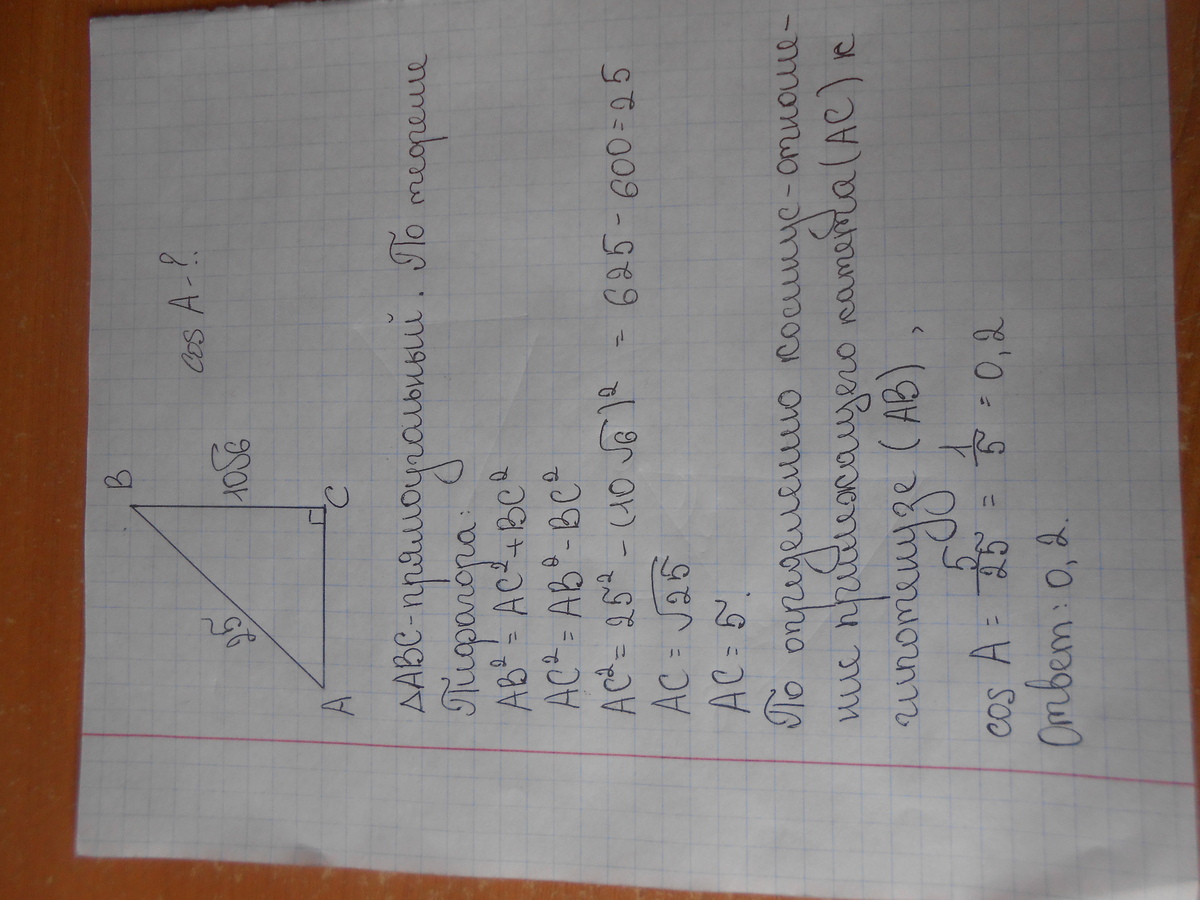 B
25
10√6
cos A - ?
A
C
△ABC - прямоугольный. По теореме
Пифагора:
AB² = AC² + BC²
AC² = AB² - BC²
AC² = 25² - (10√6)² = 625 - 600 = 25
AC = √25
AC = 5.
По определению косинус - отноше-
ние прилежащего катета (AC) к
гипотенузе (AB),
cos A = 5/25 = 1/5 = 0,2
Ответ: 0,2.